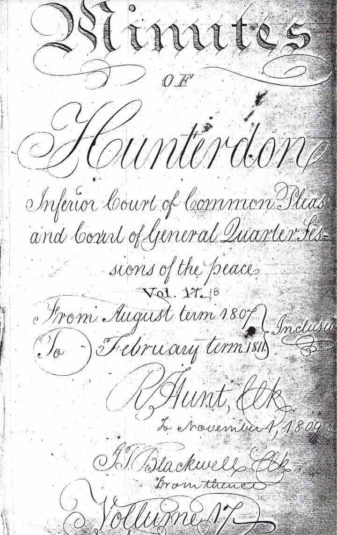 Minutes
OF
Hunterdon
Inferior Court of Common Pleas
and Court of General Quarter Ses-
sions of the peace
Vol. 17. 18
From August term 1807
To February term 1811 Inclusive
R. Hunt, Clk.
to November 1, 1809
Js. Blackwell Clk
From thence
Vollume 17